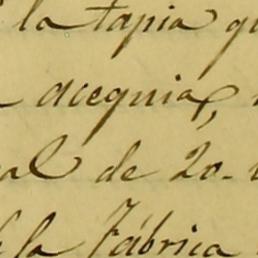 la tapia
acequia,
de 20.
la Fábrica